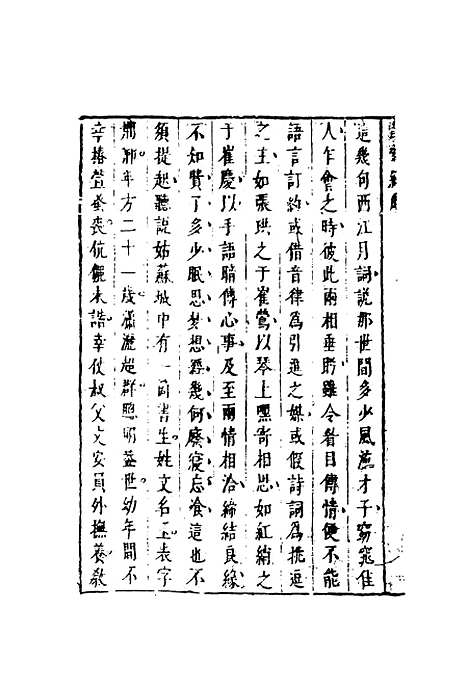 這幾句西江月詞說那世間多少風流才子窈窕佳
人乍會之時彼此兩相垂盻雖令眷目傳情便不能
語言訂約或借音律為引進之媒或假詩詞為挑逗
之主如張珙之于崔鶯以琴上絮寄相思如紅綃之
于崔慶以手語暗傳心事及至兩情相洽締結良緣
不知費了多少眠思夢想經幾何廢寢忘食這也不
須提起聽說姑蘇城中有一箇書生姓文名玉表字
荊卿年方二十一歲瀟灑超群聰明蓋世幼年間不
幸椿萱蚤喪伉儷未諧幸仗叔父文安員外撫養教